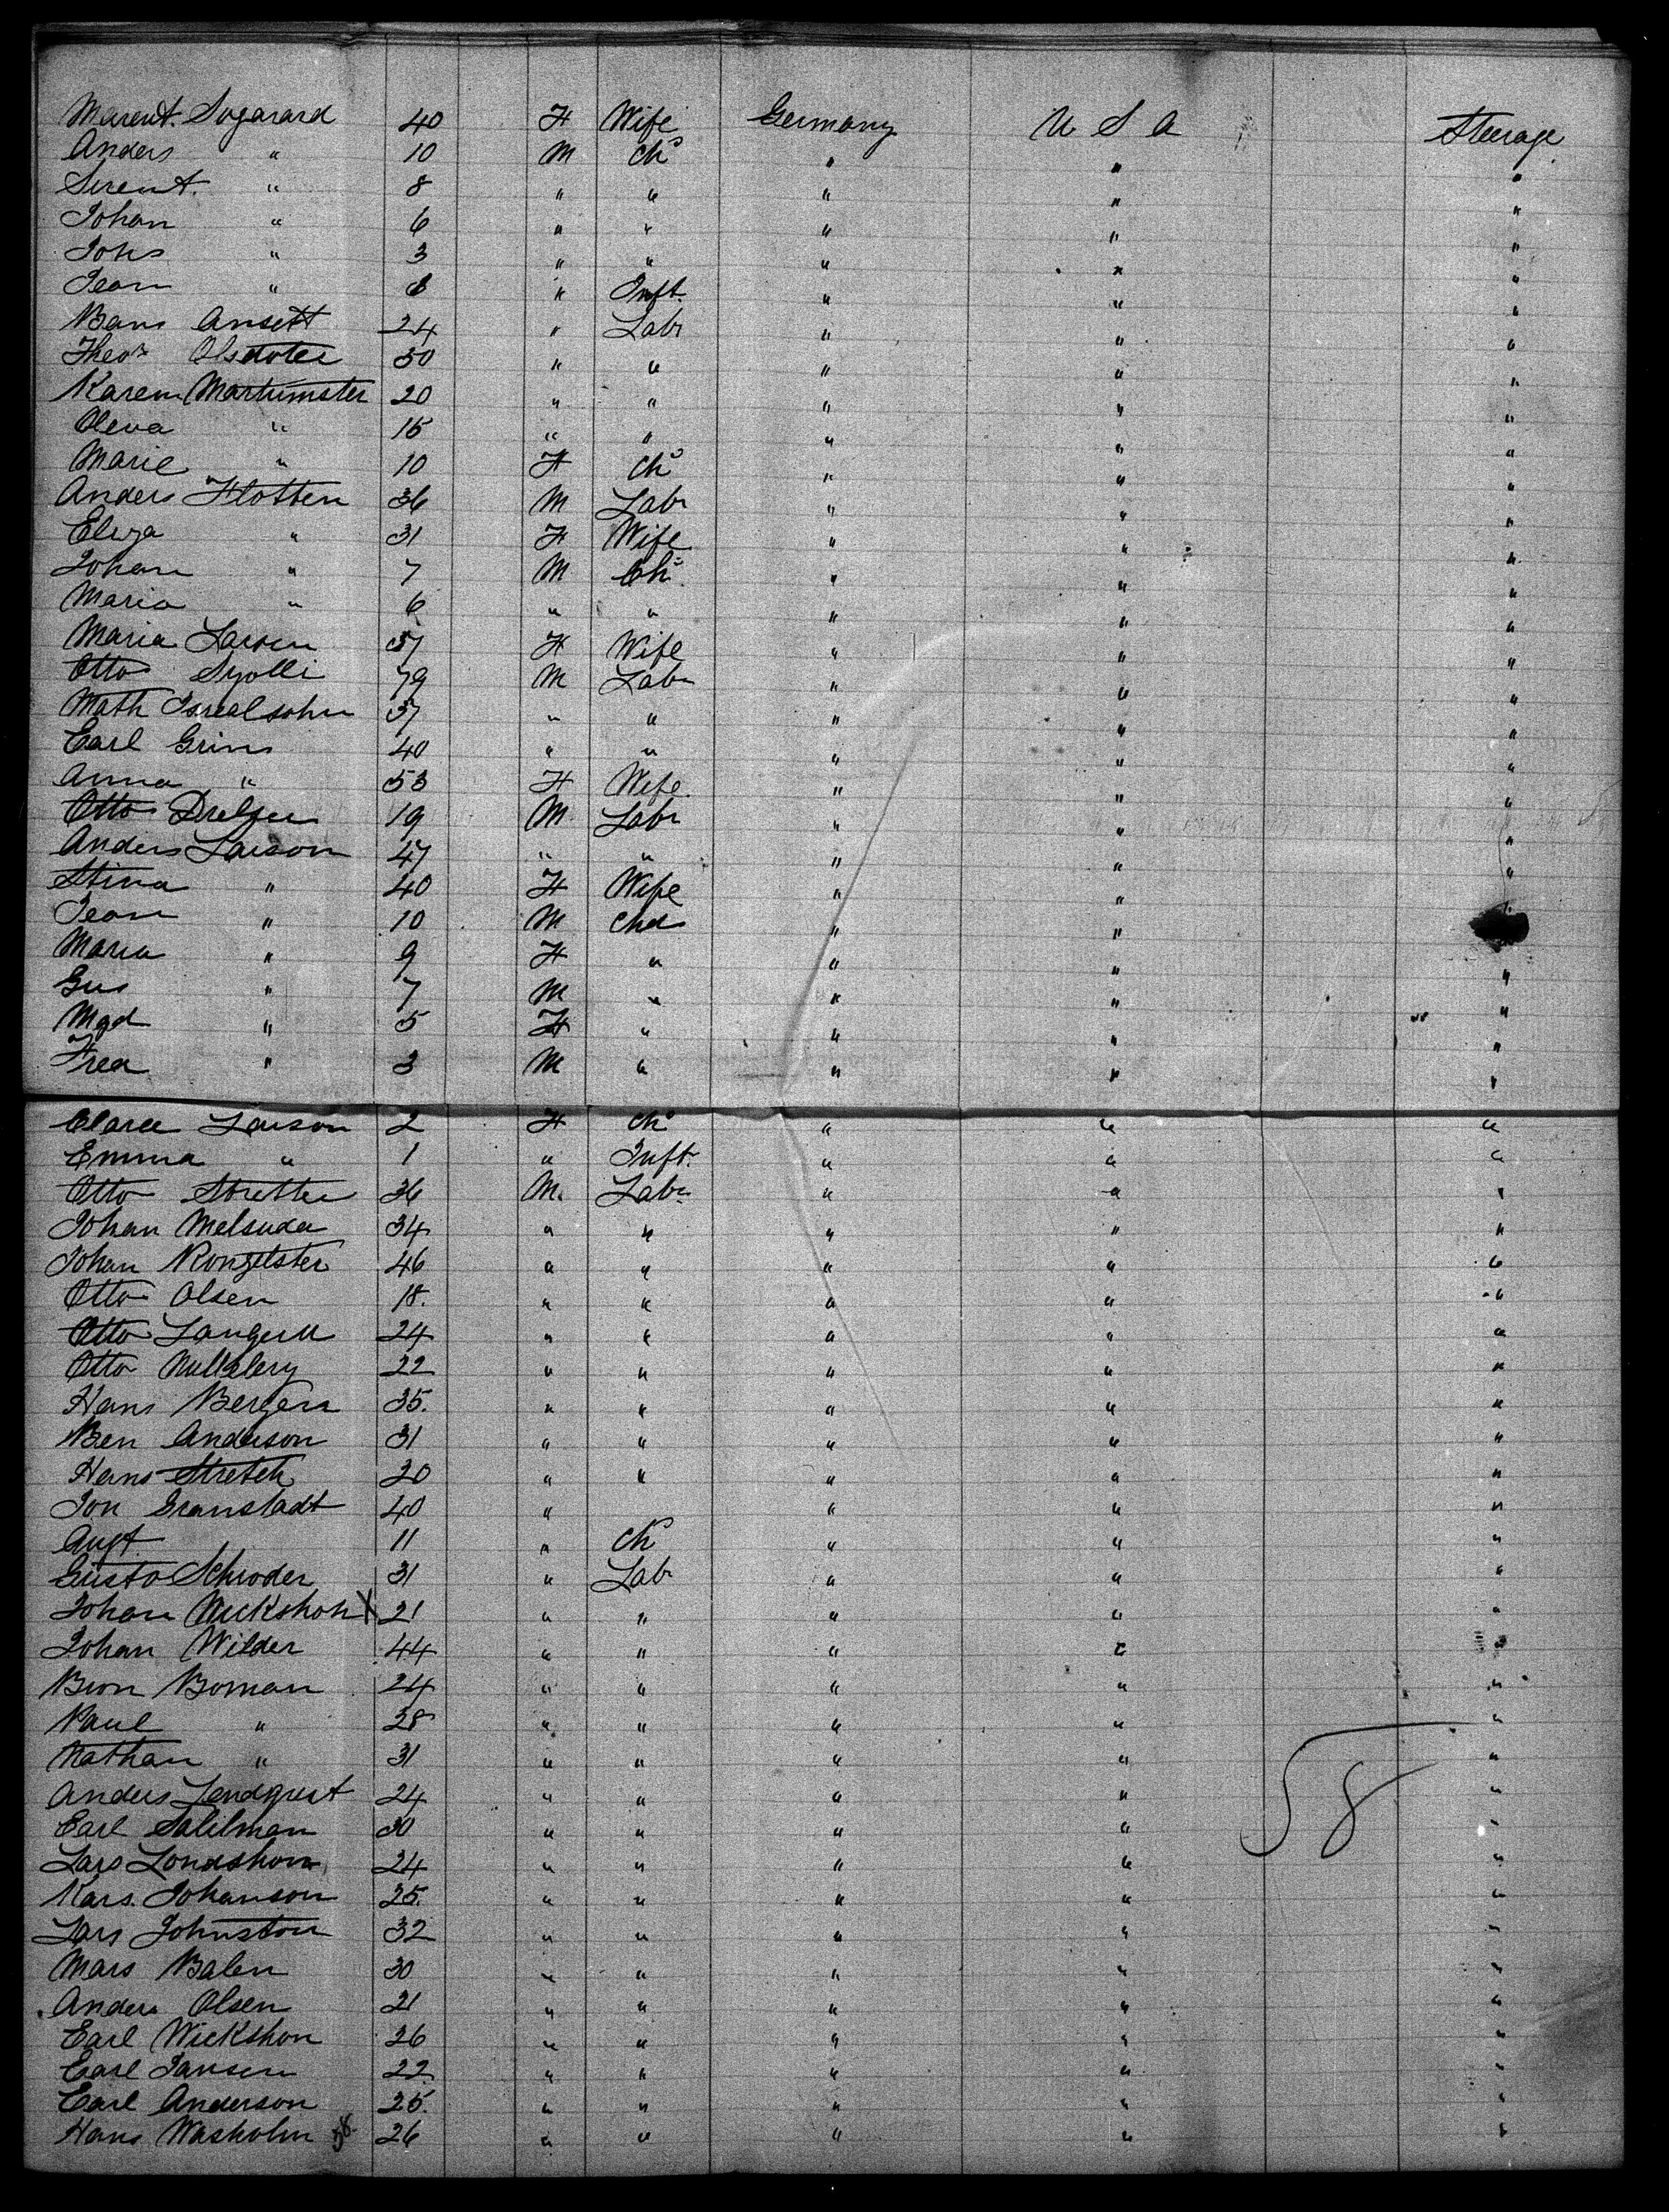 Marent. Sogarard 40 F Wife Germany U S A Steerage
Anders " 10 M Ch " " "
Sirent. " 8 " " " " "
Johan " 6 " " " " "
Johs " 3 " " " " "
Jean " " Inft. " " "
Bans Ansett 24 " Labr " " "
Theor Olsdoter 50 " " " " "
Karen Martinster 20 " " " " "
Oleva " 15 " " " " "
Marie " 10 F Ch " " "
Anders Flotten 36 M Labr " " "
Eliza " 31 F Wife " " "
Johan " 7 M Ch " " "
Maria " 6 " " " " "
Maria Larsen 37 F Wife " " "
Otto Syolli 79 M Labr " " "
Math Isrealsohn 37 " " " " "
Carl Grins 40 " " " " "
Anna " 53 F Wife " " "
Otto Drelsen 19 M Labr " " "
Anders Larson 47 " " " " "
Stina " 40 F Wife " " "
Jean " 10 M Chd " "
Maria " 9 F " " " "
Gus " 7 M " " " "
Mgd " 5 F " " " "
Fred " 3 M " " " "
Clara Larson 2 F Ch " " "
Emma " 1 " Inft. " " "
Otto Stretter 36 M. Labr " " "
Johan Melsuda 34 " " " " "
Johan Rongelster 46 " " " " "
Otto Olsen 18. " " " " "
Otto 24 " " " " "
Otto 22 " " " " "
Hans Bergen 35. " " " " "
Ben Anderson 31 " " " " "
Hans Stretch 20 " " " " "
Jon Granstadt 40 " " " "
Augt 11 " Ch " " "
Gusto Schroder 31 " Labr " " "
Johan Wickshon X 21 " " " " "
Johan Wilder 44 " " " " "
Bron Boman 24 " " " " "
Paul " 28 " " " " "
Nathan " 31 " " " " "
Anders Lendquest 24 " " " " "
Carl Salilman 30 " " " " "
58
Lars Londshon 24 " " " " "
Kars. Johanson 25. " " " " "
Lars Johnston 32 " " " " "
Mars Balen 30 " " " " "
Anders Olsen 21 " " " " "
Carl Wickshon 26 " " " " "
Carl Jansen 22 " " " " "
Carl Anderson 25. " " " " "
Hans Washolm 58. 26 " " " " "